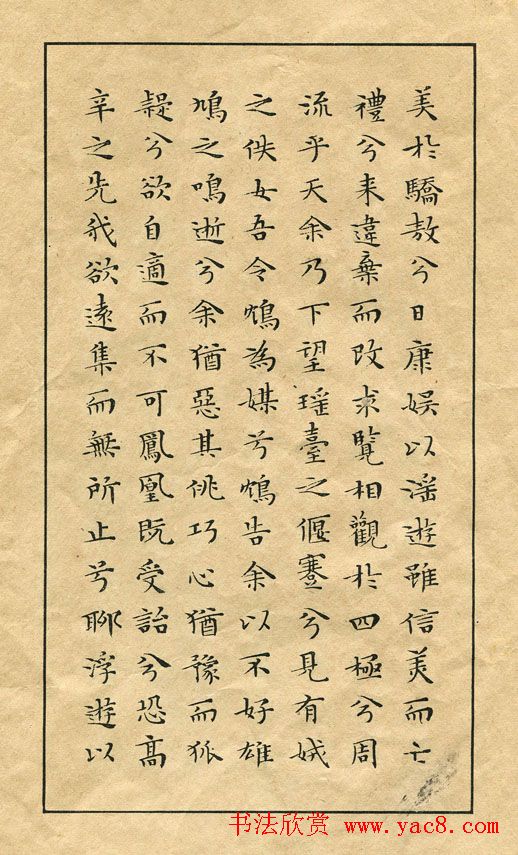 美於驕敖兮日康娱以滛遊雖信美而亡
禮兮来違棄而改求覽相觀於四極兮周
流乎天余乃下望瑶臺之偃蹇兮見有娀
之佚女吾令鴆為媒兮鴆告余以不好雄
鳩之鳴逝兮余猶惡其佻巧心猶豫而狐
疑兮欲自適而不可鳳凰既受詒兮恐髙
辛之先我欲遠集而無所止兮聊浮遊以
书法欣赏 www.yac8.com